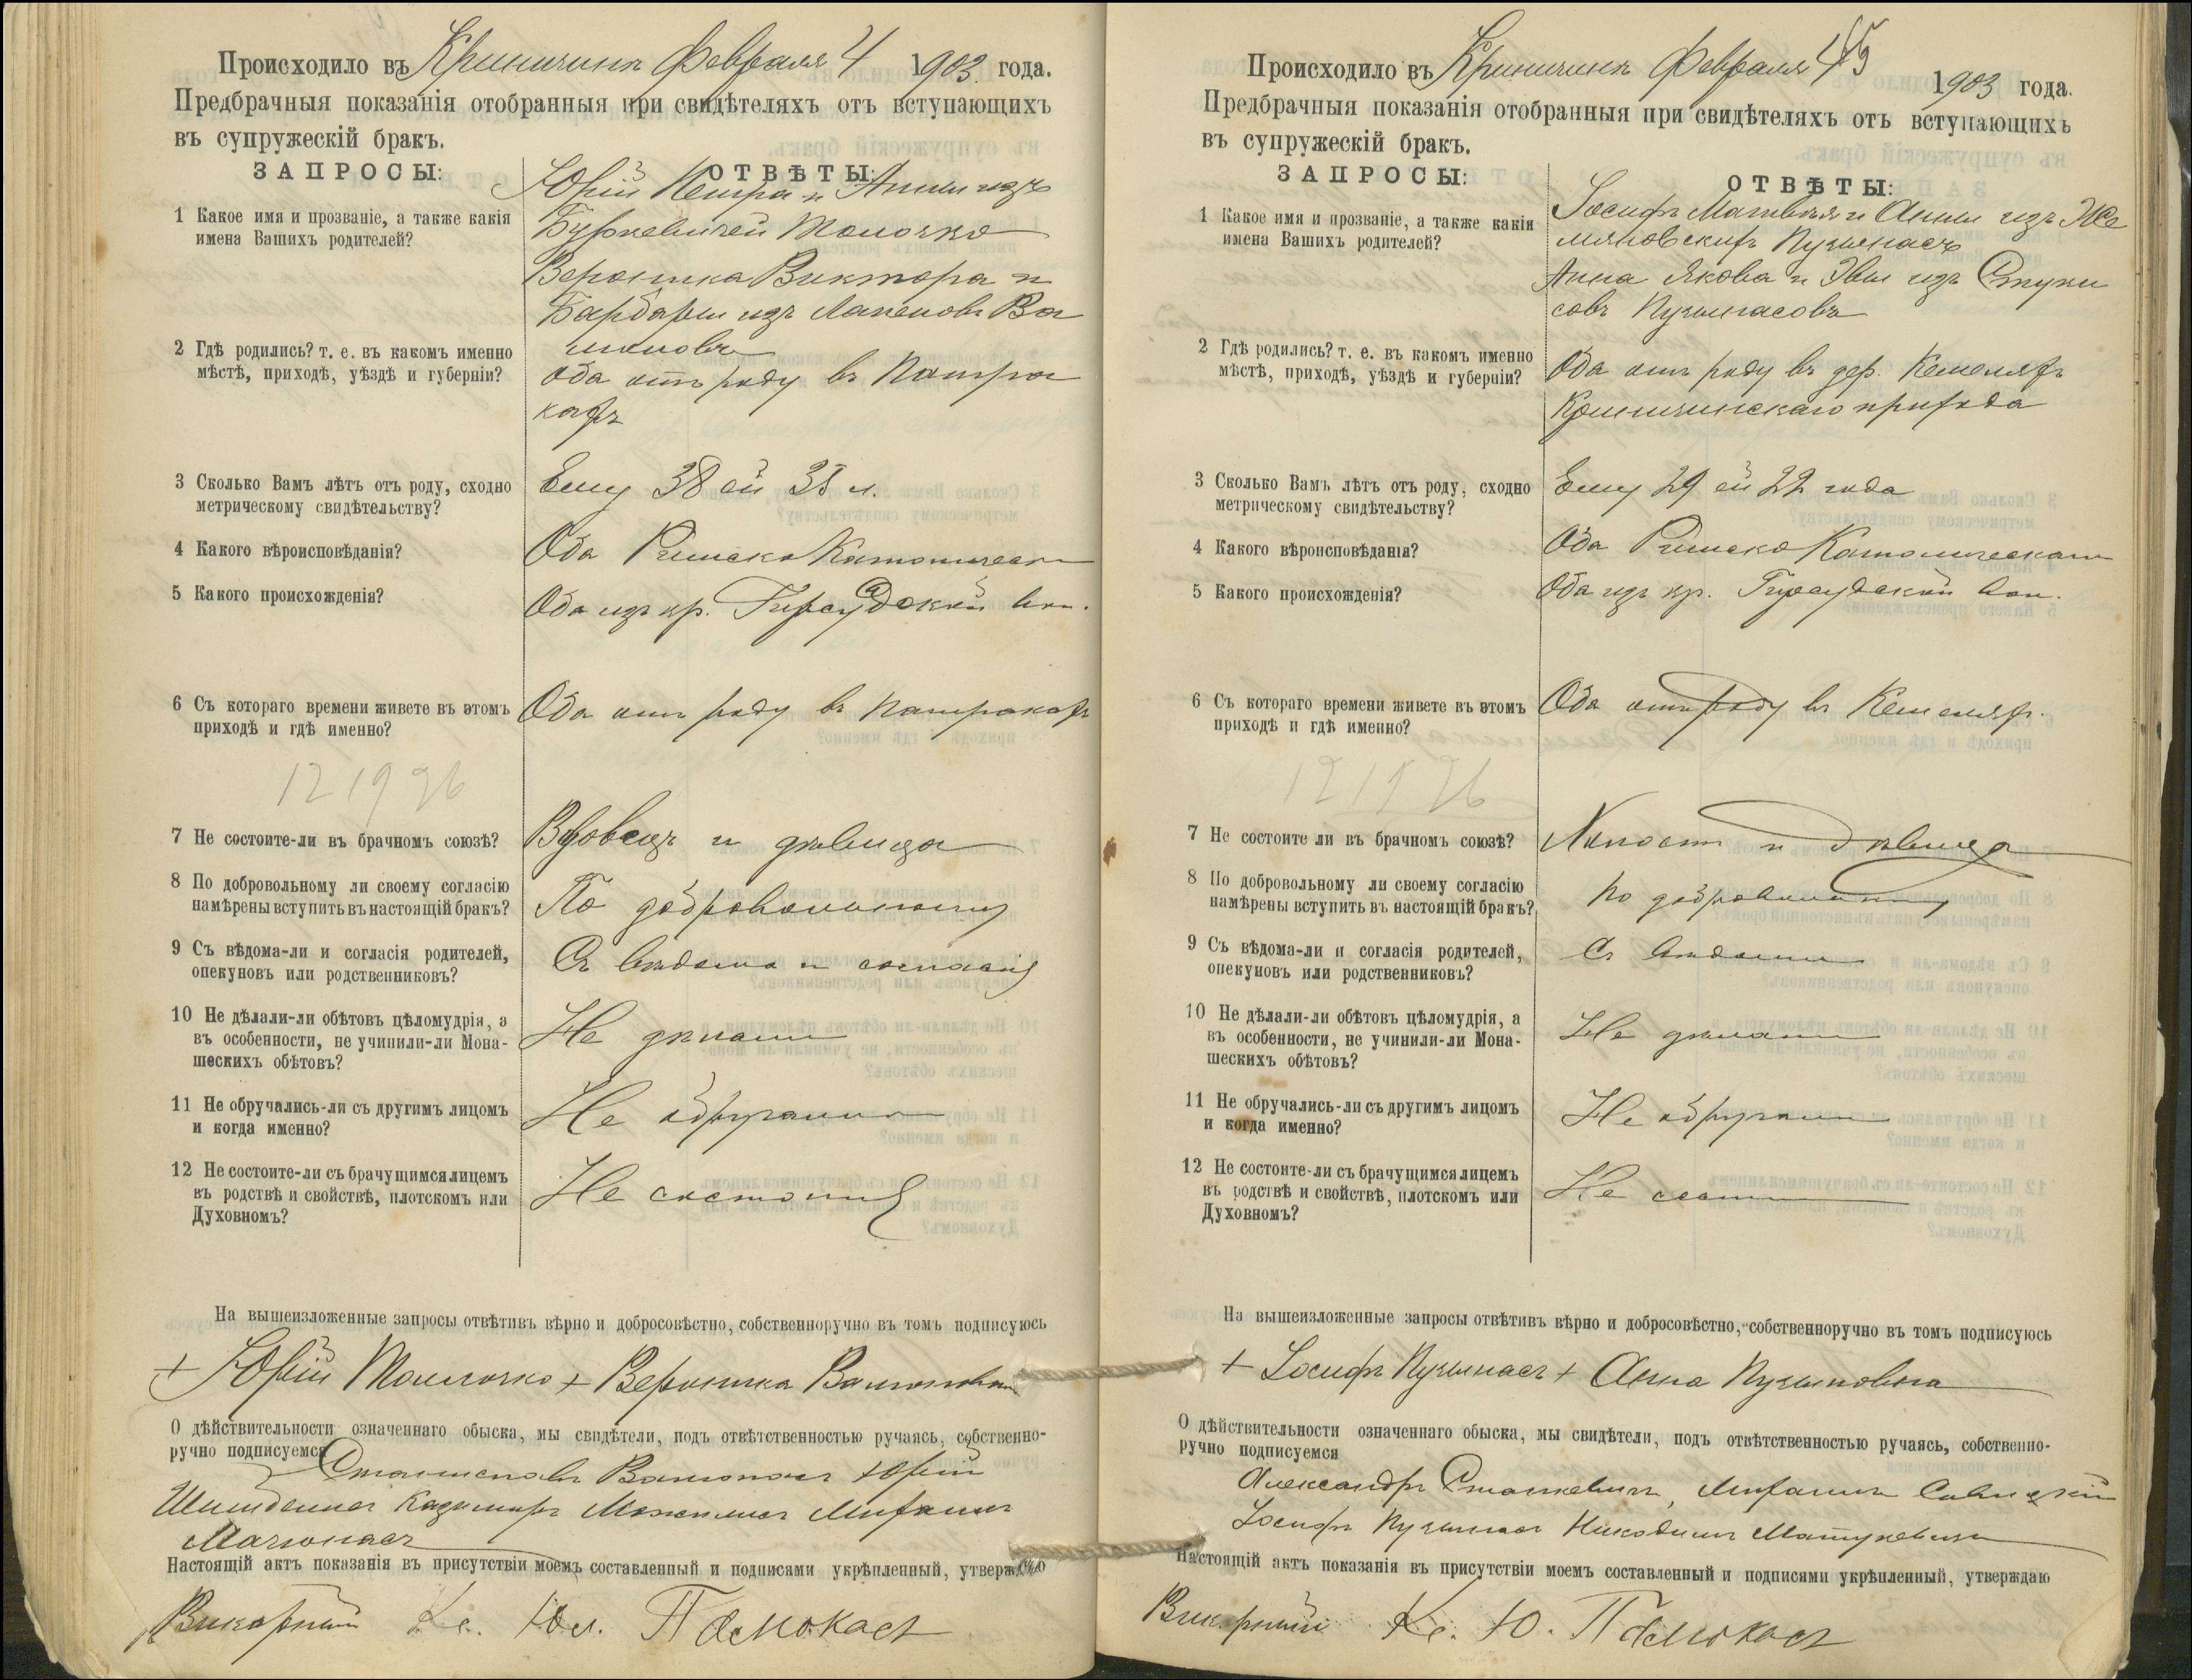 Происходило въ Криничинѣ Февраля 4 1903 года.
Предбрачныя показанія отобранныя при свидѣтеляхъ отъ вступающихъ
въ супружескій бракъ.
ЗАПРОСЫ: ОТВѢТЫ:
1 Какое имя и прозваніе, а также какія
имена Вашихъ родителей?
Юрій Петра и Анны изъ
Буркевичей Толочко
Вероника Виктора и
Барбары изъ
оба отъ роду въ
2 Гдѣ родились? т. е. въ какомъ именно
мѣстѣ, приходѣ, уѣздѣ и губерніи?
3 Сколько Вамъ лѣтъ отъ роду, сходно
метрическому свидѣтельству?
Ему 38 ей л.
4 Какого вѣроисповѣданія?
Оба Римско Католическ
5 Какого происхожденія?
Оба изъ кр. вол.
6 Съ котораго времени живете въ этомъ
приходѣ и гдѣ именно?
Оба отъ роду въ Патракахъ
121926
7 Не состоите-ли въ брачномъ союзѣ?
Вдовецъ и дѣвица
8 По добровольному ли своему согласію
намѣрены вступить въ настоящій бракъ?
По добровольному
9 Съ вѣдома-ли и согласія родителей,
опекуновъ или родственниковъ?
Съ вѣдома и согласія
10 Не дѣлали-ли обѣтовъ цѣломудрія, а
въ особенности, не учинили-ли Мона-
шескихъ обѣтовъ?
Не дѣлали
11 Не обручались-ли съ другимъ лицомъ
и когда именно?
Не обручались
12 Не состоите-ли съ брачущимся лицемъ
въ родствѣ и свойствѣ, плотскомъ или
Духовномъ?
Не состоимъ
На вышеизложенные запросы отвѣтивъ вѣрно и добросовѣстно, собственноручно въ томъ подписуюсь
+ Юрій Толлочко + Вероника
О дѣйствительности означеннаго обыска, мы свидѣтели, подъ отвѣтственностью ручаясь, собственно-
ручно подписуемся
Станиславъ Юрій
Казимиръ
Настоящій актъ показанія въ присутствіи моемъ составленный и подписами укрѣпленный, утверждаю
Викарный Кс. Юл. Памокасъ
Происходило въ Криничинѣ Февраля 1903 года.
Предбрачныя показанія отобранныя при свидѣтеляхъ отъ вступающихъ
въ супружескій бракъ.
ЗАПРОСЫ: ОТВѢТЫ:
1 Какое имя и прозваніе, а также какія
имена Вашихъ родителей?
Іосифъ Матвѣя и Анны изъ
Анна Якова и Эвы изъ
2 Гдѣ родились? т. е. въ какомъ именно
мѣстѣ, приходѣ, уѣздѣ и губерніи?
Оба отъ роду въ дер. Кемеляхъ
Криничинскаго прихода
3 Сколько Вамъ лѣтъ отъ роду, сходно
метрическому свидѣтельству?
Ему 29 ей 22 года
4 Какого вѣроисповѣданія?
Оба Римско Католическаго
5 Какого происхожденія?
Оба изъ кр. вол.
6 Съ котораго времени живете въ этомъ
приходѣ и гдѣ именно?
Оба отъ роду въ Кемеляхъ
121926
7 Не состоите ли въ брачномъ союзѣ?
Холостъ и дѣвица
8 По добровольному ли своему согласію
намѣрены вступить въ настоящій бракъ?
По добровольному
9 Съ вѣдома-ли и согласія родителей,
опекуновъ или родственниковъ?
Съ вѣдома
10 Не дѣлали-ли обѣтовъ цѣломудрія, а
въ особенности, не учинили-ли Мона-
шескихъ обѣтовъ?
Не дѣлали
11 Не обручались-ли съ другимъ лицомъ
и когда именно?
Не обручались
12 Не состоите-ли съ брачущимся лицемъ
въ родствѣ и свойствѣ, плотскомъ или
Духовномъ?
Не
На вышеизложенные запросы отвѣтивъ вѣрно и добросовѣстно, собственноручно въ томъ подписуюсь
+ Іосифъ Пузынасъ + Анна
О дѣйствительности означеннаго обыска, мы свидѣтели, подъ отвѣтственностью ручаясь, собственно-
ручно подписуемся
Александръ Станкевичъ, Савицкій
Іосифъ Пузынасъ Никодимъ
Настоящій актъ показанія въ присутствіи моемъ составленный и подписами укрѣпленный, утверждаю
Викарный Кс. Ю. Памокасъ